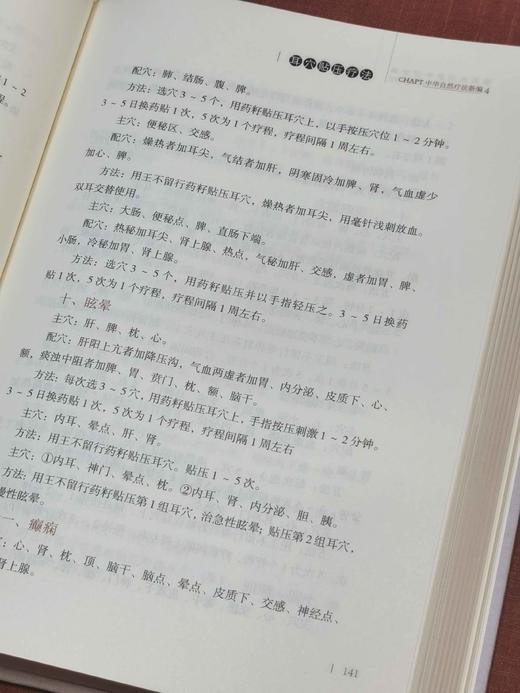 耳穴贴压疗法
CHAPT 中华自然疗法新编 4
配穴：肺、结肠、腹、脾。
方法：选穴3～5个，用药籽贴压耳穴上，以手按压穴位1～2分钟。
3～5日换药贴1次，5次为1个疗程，疗程间隔1周左右。
主穴：便秘区、交感。
配穴：燥热者加耳尖，气结者加肝，阴寒固冷加脾、肾，气血虚少
加心、脾。
方法：用王不留行药籽贴压耳穴，燥热者加耳尖，用毫针浅刺放血。
双耳交替使用。
主穴：大肠、便秘点、脾、直肠下端。
配穴：热秘加耳尖、肾上腺、热点，气秘加肝、交感，虚者加胃、脾、
小肠，冷秘加胃、肾上腺。
方法：选穴3～5个，用药籽贴压并以手指轻压之。3～5日换药
贴1次，5次为1个疗程，疗程间隔1周左右。
十、眩晕
主穴：肝、脾、枕、心。
配穴：肝阳上亢者加降压沟，气血两虚者加胃、内分泌、皮质下、心、
额，痰浊中阻者加脾、胃、贲门、枕、额、脑干。
方法：每次选3～5穴，用药籽贴压耳穴上，手指按压刺激1～2分钟。
3～5日换药贴1次，5次为1个疗程，疗程间隔1周左右
主穴：内耳、晕点、肝、肾。
方法：用王不留行药籽贴压耳穴。贴压1～5次。
主穴：①内耳、神门、晕点、枕。②内耳、肾、内分泌、胆、胰。
方法：用王不留行药籽贴压第1组耳穴，治急性眩晕；贴压第2组耳穴，
慢性眩晕。
一、癫痫
：心、肾、枕、顶、脑干、脑点、晕点、皮质下、交感、神经点、
肾上腺。
141